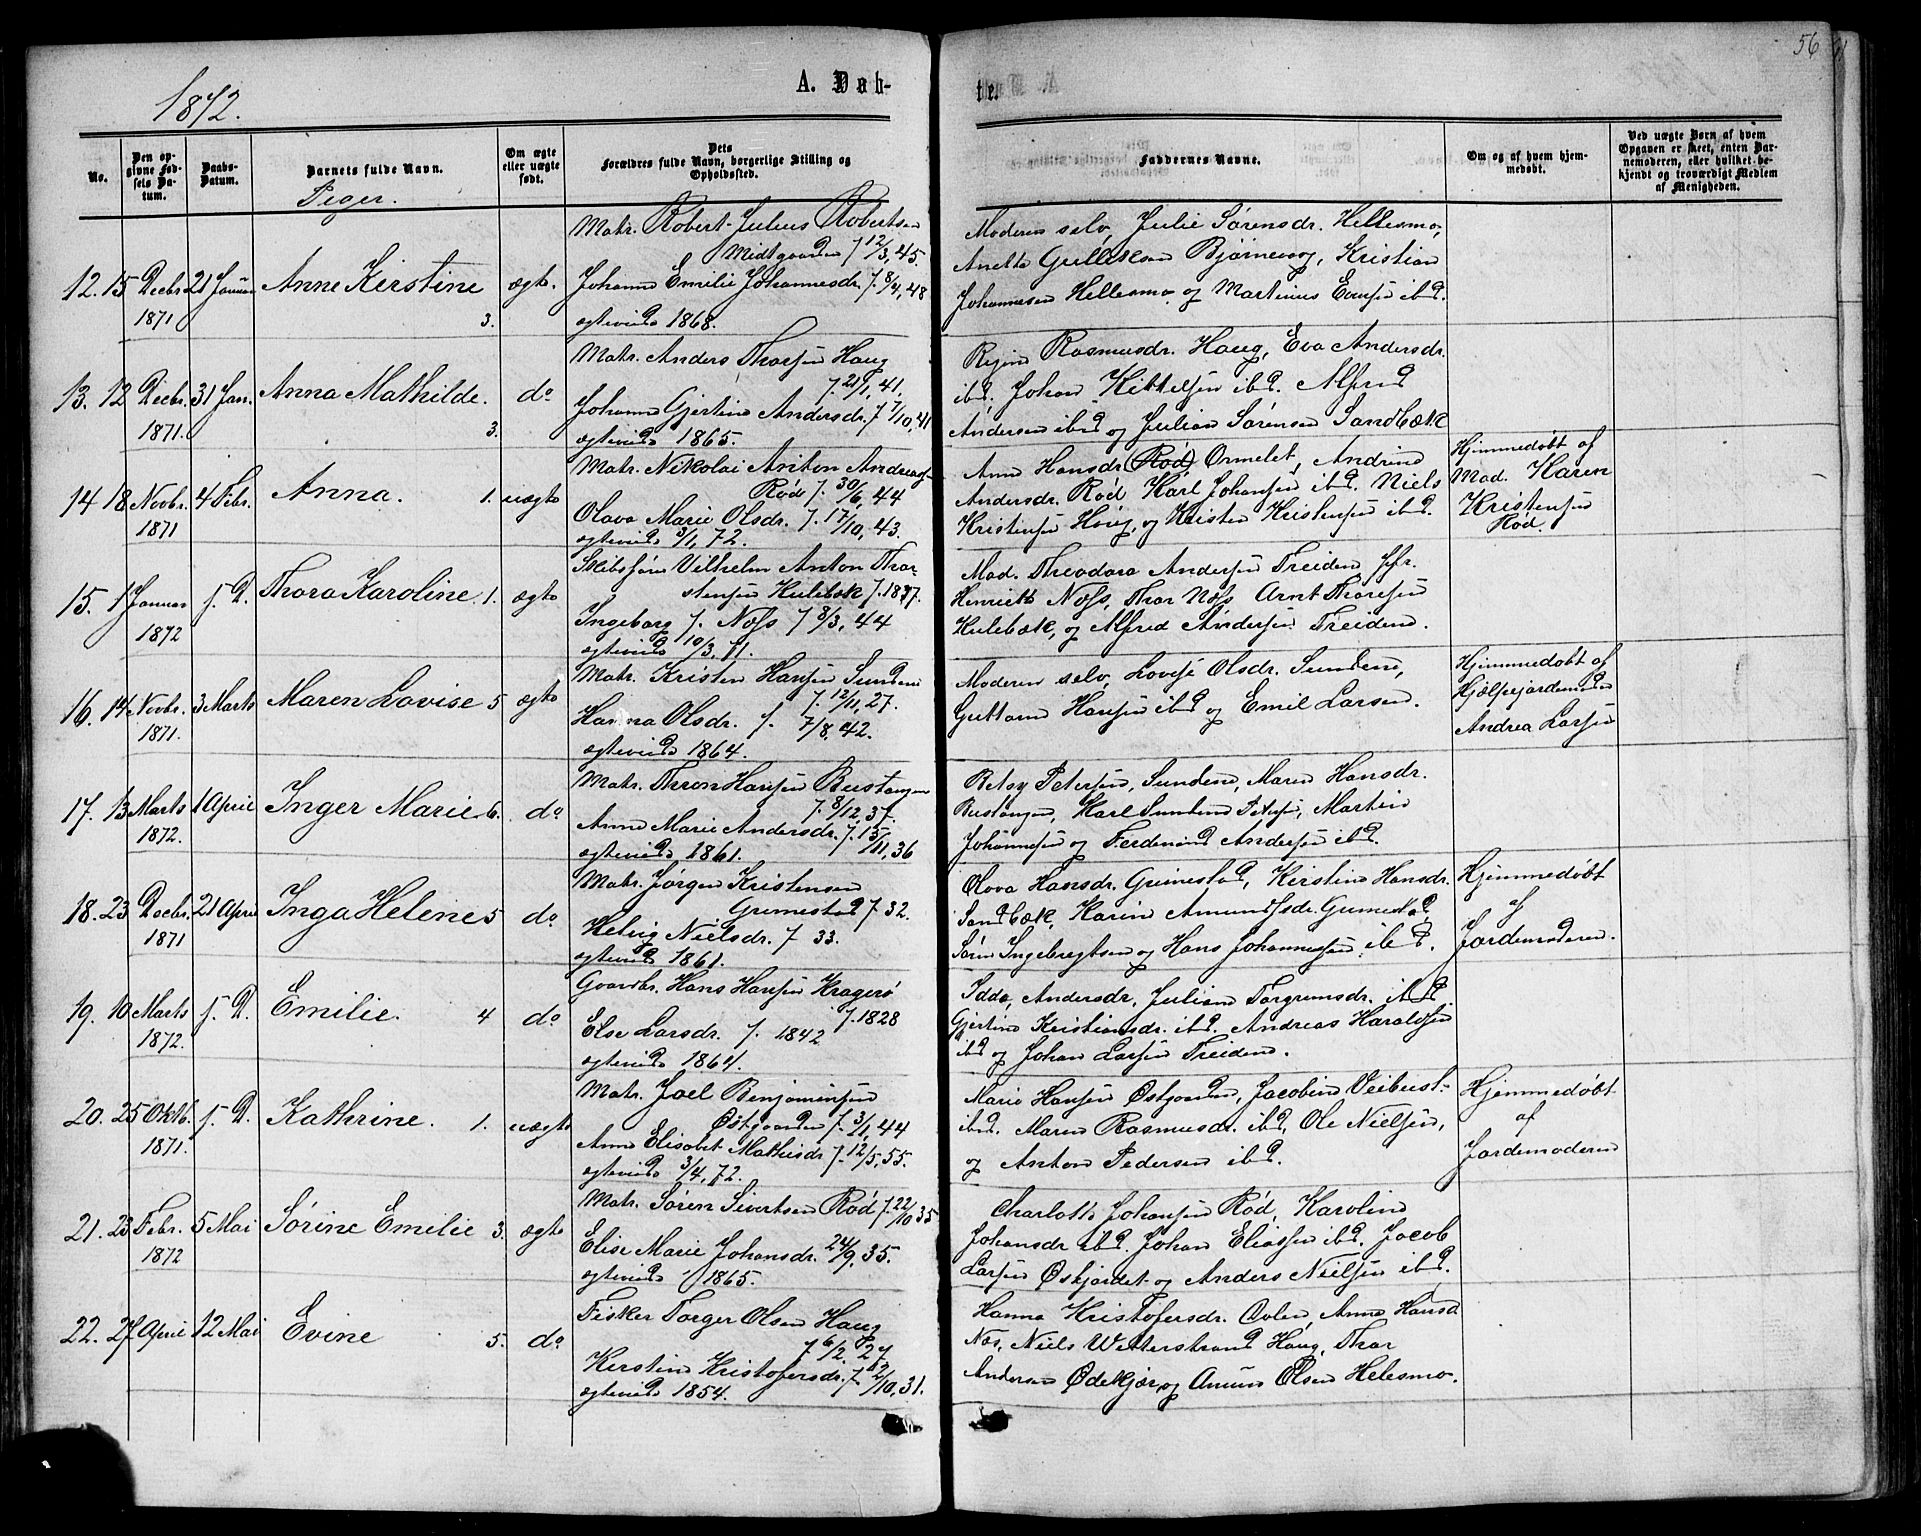 56
1872.
A. Døb-
te.
No.
Den opgivne Fødsels Datum.
Daabs-Datum.
Barnets fulde Navn.
Piger.
Om ægte eller uægte født.
Dets Forældres fulde Navn, borgerlige Stilling og Opholdssted.
Faddernes Navne.
Om og af hvem hjemmedøbt.
Ved uægte Børn af hvem Opgaven er skeet, enten Barnemoderen, eller hvilket bekjendt og troværdigt Medlem af Menigheden.
12. 15 Decbr. 1871 21 Januar Anne Kirstine 3. ægte.
Matr. Robert Julius Robertsen
Midtgaarden f 12/3, 45.
Johanne Emilie Johannesdr. f. 8/4, 48
ægtevied 1868.
Moderen selv, Julie Sørensdr. Hellesmo,
Anette Gulliksen Bjørnevog, Kristian
Johannesen Hellesmo og Martinus Evensen ibd.
13. 12 Decbr. 1871. 31 Jan. Anna Mathilde. 3. do
Matr. Anders Thorsen Haug
f. 21/1, 41.
Johanne Gjertine Andersdr. f 7/10, 41
ægtevied 1865.
Regine Rasmusdr. Haug, Eva Andersdr.
ibd. Johan Kittelsen ibd. Alfred
Andersen ibd og Julian Sørensen Sandbæk
14 18 Novbr. 1871 4 Febr. Anna. 1. uægte
Matr. Nikolai Anton Andreas-
Rød f. 30/6, 44
Olava Marie Olsdr. f. 17/10, 43.
ægtevied 3/1, 72.
Anne Hansdr. (Rød) Ormelet, Andrine
Andersdr. Rød Karl Johansen ibd. Niels
Kristensen Houg, og Kristen Kristensen ibd.
Hjemmedøbt af
Mad. Karen
Kristensen
Rød.
15. 1 Januar 1872 s. D. Thora Karoline. 1. ægte
Skibsfører Vilhelm Anton Thor-
stensen Kulebæk f. 1837.
Ingeborg f. Næss f 8/3, 44
ægtevied 10/3, 71.
Mad. Theodora Andersen Treiden Jfr.
Henriette Næss, Thor Næss Arnt Thoresen
Kulebæk, og Alfred Andersen Treidene.
16. 14 Novbr. 1871. 3 Marts Maren Lovise 5 ægte
Matr. Kristen Hansen Sundene
f. 12/11, 27.
Hanna Olsdr. f. 7/8, 42.
ægtevied 1864.
Moderen selv, Lovise Olsdr. Sundene,
Guttorm Hansen ibd og Emil Larsen.
Hjemmedøbt af
Hjælpejordemoder
Andrea Larsen
17. 13 Marts 1872. 1 April Inger Marie. 6. do.
Matr. Thron Hansen Bustangen
f. 8/12, 37.
Anne Marie Andersdr. f. 15/11, 36
ægtevied 1861.
Betsy Petersen, Sundene, Maren Hansdr.
Bustangen, Karl Sundene Petersen, Martin
Johannesen og Ferdinand Andersen ibd.
18. 23 Decbr. 1871 21 April Inga Helene 5 do
Matr. Jørgen Kristensen
Grimestad f 32.
Helvig Nielsdr. f 33.
ægtevied 1861.
Olava Hansdr. Grimestad, Kirstine Hansdr.
Sandbæk, Karin Amundsdr. Grimestad,
Søren Ingebregtsen og Hans Johannessen ibd.
Hjemmedøbt
af
Jordemoderen.
19. 10 Marts 1872. s. D. Emilie. 4 do
Gaardbr. Hans Hansen Kragerø
f. 1828
Else Larsdr. f. 1842
ægtevied 1864.
Idda, Andersdr, Juliane Torgrimsdr. ibd
Gjertine Kristiansdr. ibd. Andreas Haraldsen
ibd og Johan Larsen Treidene.
20. 25 Oktb. 1871. s. D. Kathrine. 1. uægte
Matr. Joel Benjaminsen
Østgaarden f. 3/1, 44
Anne Elisabet Mathisdr f. 12/5, 55.
ægtevied 3/4, 72.
Marie Hansen Østgaarden, Jacobine Veibust-
ibd. Maren Rasmusdr. ibd, Ole Nielsen,
og Anton Pedersen ibd.
Hjemmedøbt
af
Jordemoderen
21. 23 Febr. 1872 5 Mai Sørine Emilie 3. ægte
Matr. Søren Sivertsen Rød f. 22/10 35
Elise Marie Johansdr. 24/9, 35.
ægtevied 1865.
Charlotte Johansen Rød, Karoline
Johansdr ibd. Johan Eliassen ibd. Jacob
Larsen Øskjordet og Anders Nielsen ibd.
22. 27 April 12 Mai Evine 5. do
Fisker Torger Olsen Haug
f 6/2 27
Kirstine Kristofersdr. f 12/10, 31.
ægtevied 1854.
Hanna Kristofersdr. Oulen, Anne Hansd
Næs, Niels Wetterstrand Haug, Thor
Andersen Ødekjær, og Amun Olsen Helesmo.